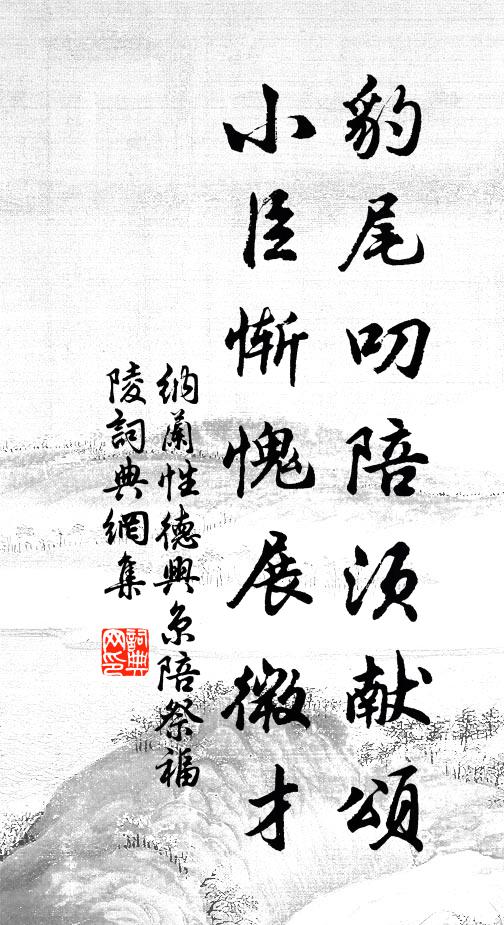 豹尾叨陪須献頌
小臣慚愧展微才
納蘭性德興京陪祭福
陵詞典網集
詞典网印